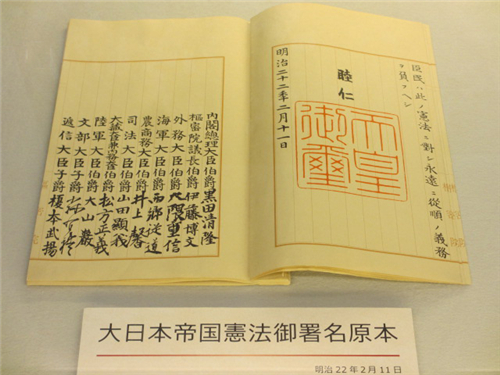 臣民ハ此ノ憲法ニ對シ永遠ニ從順ノ義務
ヲ負フヘシ
睦仁
天皇
御璽
明治二十二年二月十一日
内閣總理大臣伯爵黒田清隆
樞密院議長伯爵伊藤博文
外務大臣伯爵大隈重信
海軍大臣伯爵西郷從道
農商務大臣伯爵井上馨
司法大臣伯爵山田顯義
大藏大臣兼内務大臣伯爵松方正義
陸軍大臣伯爵大山巖
文部大臣子爵森有禮
遞信大臣子爵榎本武揚
大日本帝国憲法御署名原本
明治22年2月11日